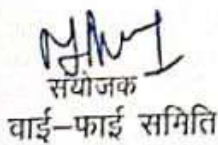 संयोजक
वाई-फाई समिति